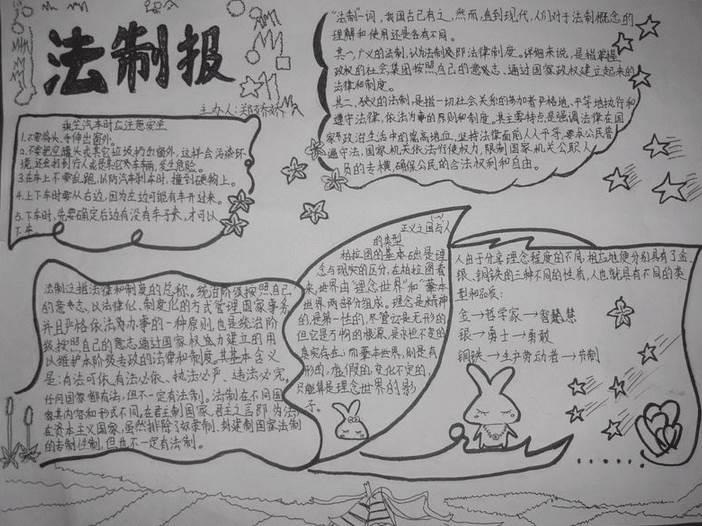 法制报
主办人:郑娇娇
乘坐汽车时应注意安全
1.不要将头、手伸出窗外。
2.不要把空罐头或其它垃圾扔出窗外,这样会污染环
境,还会打到行人或是其它汽车车辆,发生危险。
3.在车上不要乱跑,以防汽车刹车时,撞到硬物上。
4.上下车时要从右边,因为左边可能有车开过来。
5.下车时,先要确定后边有没有车子来,才可以
下车
"法制"一词,我国古已有之,然而,直到现代,人们对于法制概念的
理解和使用还是各有不同。
其一,广义的法制,认为法制及即法律制度。详细来说,是指掌握
政权的社会集团按照自己的意志、通过国家政权建立起来的
法律和制度。
其二、狭义的法制,是指一切社会关系的参加者严格地、平等地执行和
遵守法律,依法办事的原则和制度。其主要特点是强调法律在国
家政治生活中的崇高地位,坚持法律面前人人平等,要求公民普
遍守法,国家机关依法行使权力,限制国家机关公职人
员的专横,确保公民的合法权利和自由。
法制主指法律和制度的总称。统治阶级按照自己
的意志、以法律化、制度化的方式管理国家事务,
并且严格依法办事的一种原则,也是统治阶
级按照自己的意志通过国家权力建立的用
以维护本阶级专政的法律和制度,其基本含义
是:有法可依、有法必依、执法必严、违法必究。
任何国家都有法,但不一定有法制。法制在不同国
家其内容和形式不同,在君主制国家,君主之言即为法
在资本主义国家,虽然排除了奴隶制、封建制国家法制
的专制性制,但也不一定有法制。
(一)
正义之国与人
的类型
柏拉图的基本
念与现实的区分,在柏拉图看
来,世界由"理念世界"和"
世界"两部分组成。理念是精神
的,是第一性的,尽管它是无形的
但它是万物的根源,是永恒不变的
真实存在;而
形的,虚假的,变化不定的,
只能算是理念世界的影
子。
人由于分享理念程度的不同,相应地便分别具有了金、
银、铜铁的三种不同的性质,人也就具有不同的类
型和品质:
金→哲学家→智慧
银→勇士→勇敢
铜铁→生产劳动者→节制